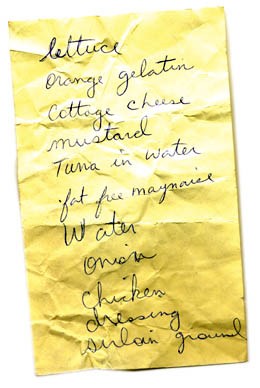 lettuce
orange gelatin
Cottage cheese
mustard
Tuna in water
fat free maynaise
Water
onion
Chicken
dressing
sirloin ground